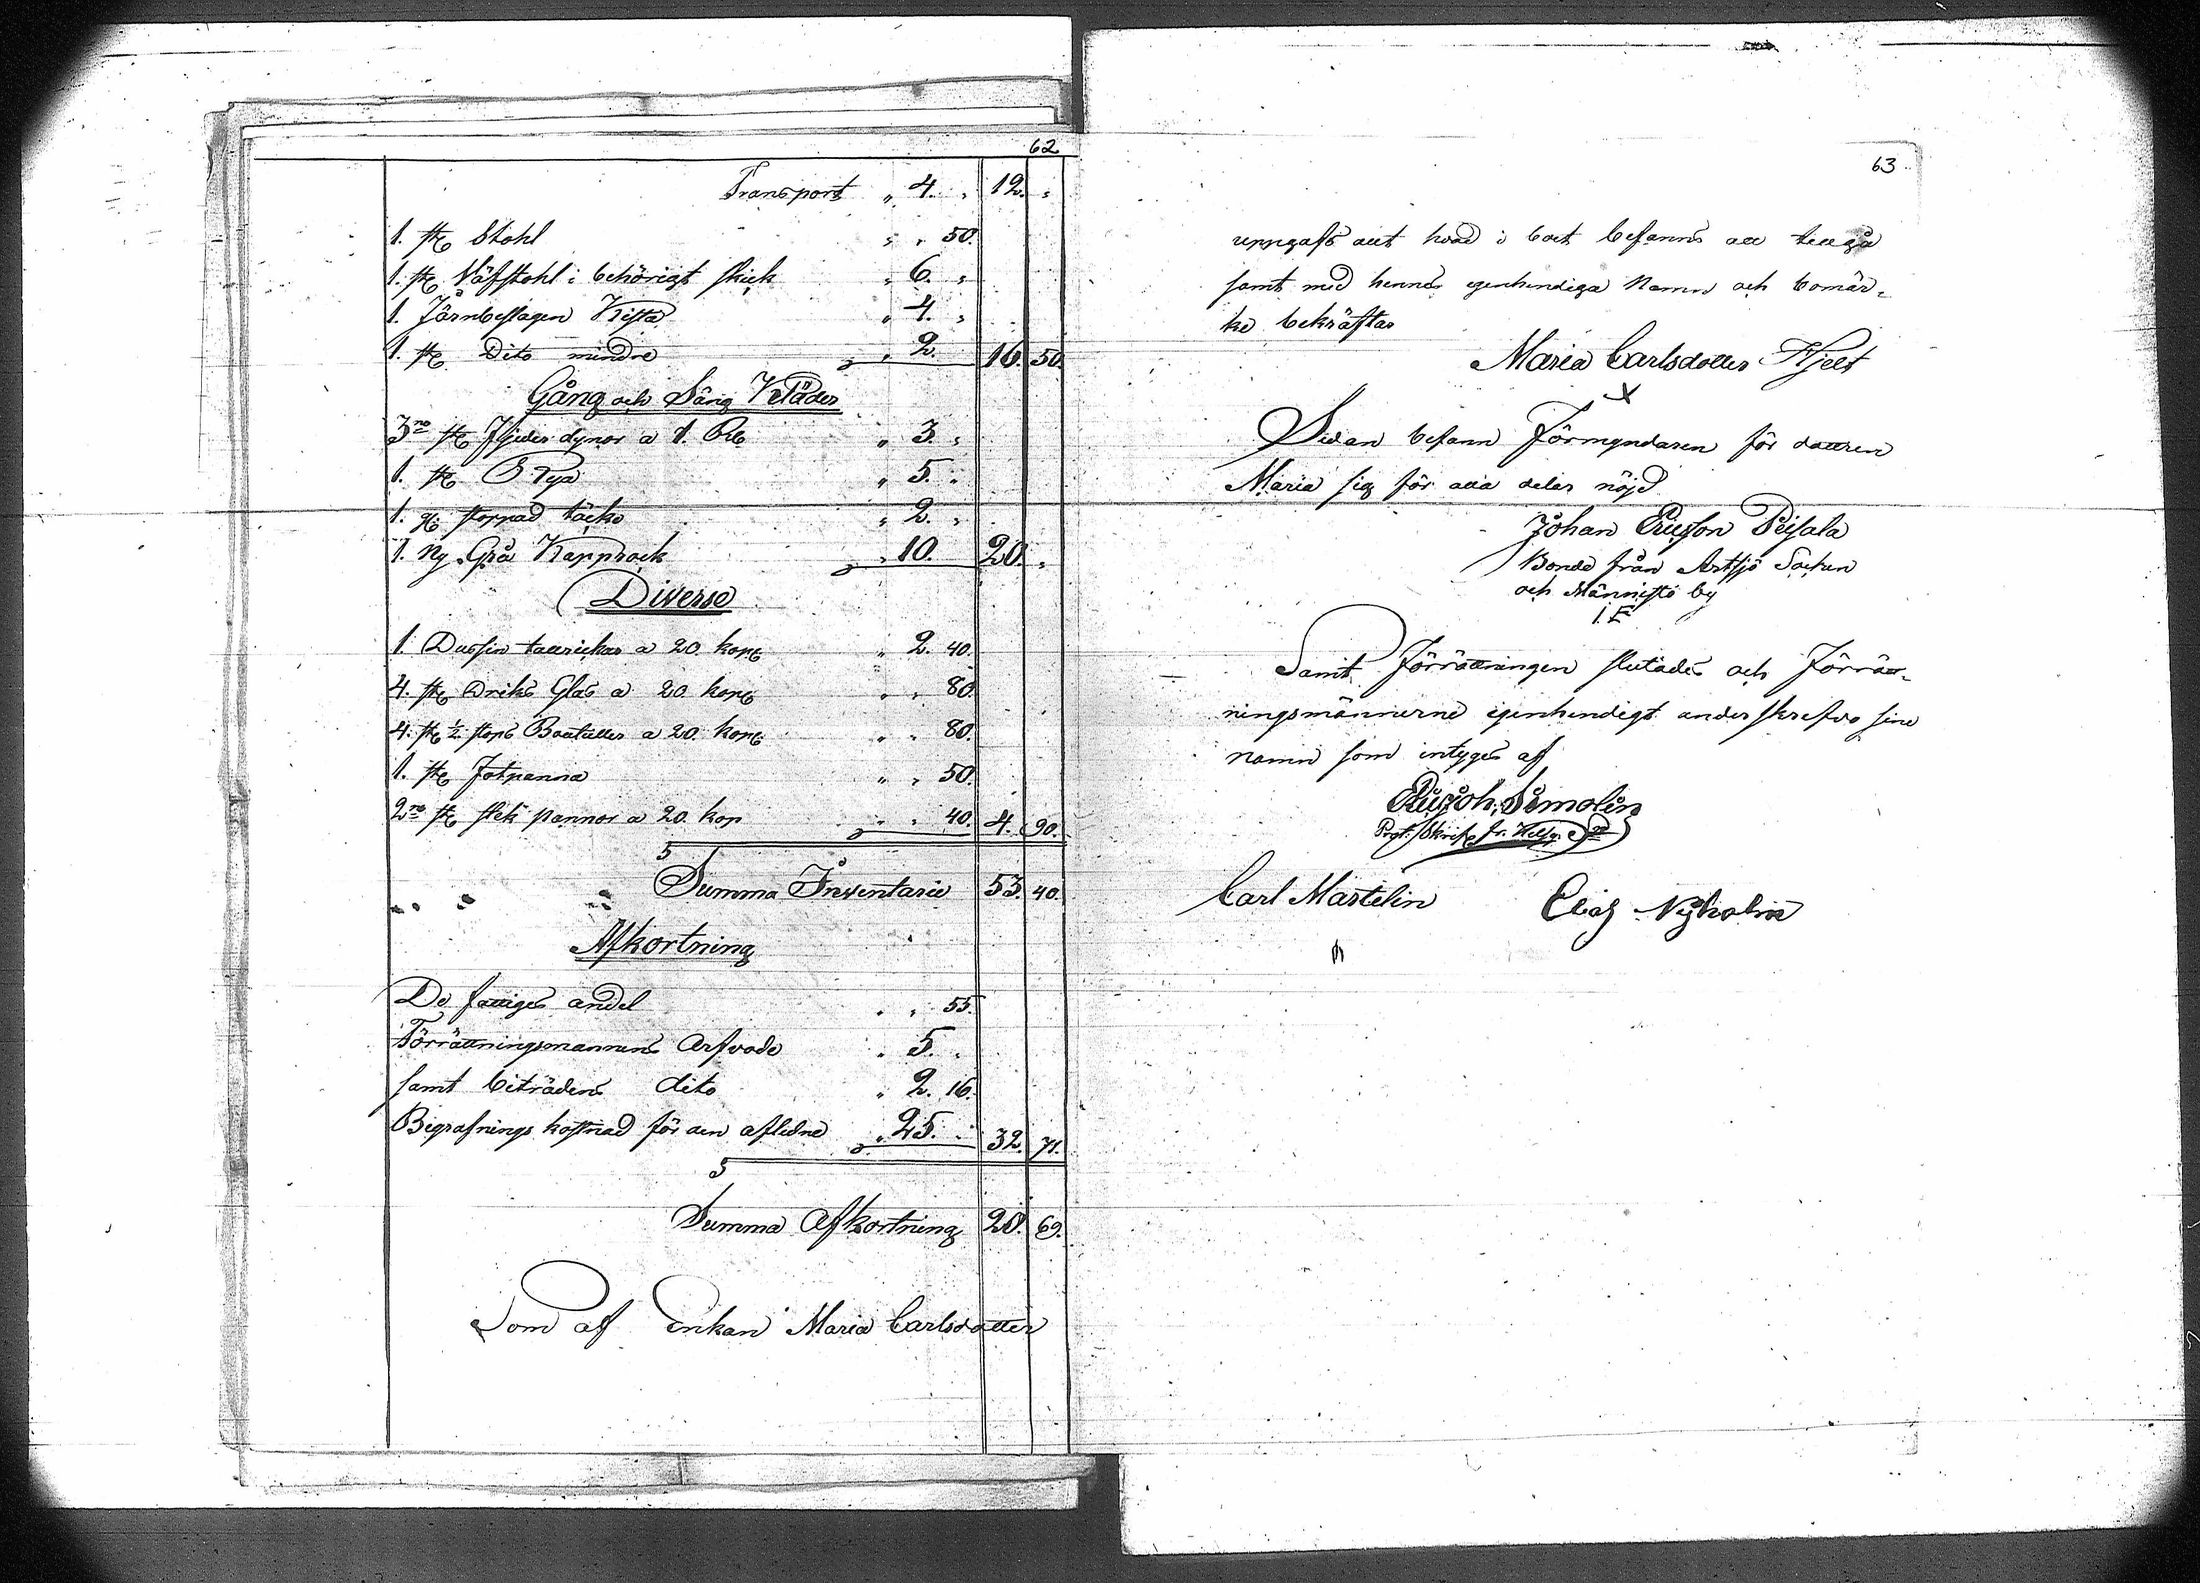 62
Transport " 4. " 12. "
1. st Stohl " " 50.
1. st Väfstohl i behörigt skick " 6. "
1. Järnbeslagen Kista " 4. "
1. st Dito mindre " 2. 16. 50.
Gång och Säng Kläder
3ne st Fjeder dynor a 1. Rub " 3. "
1. st Rya " 5. "
1. st stoppad täcke " 2. "
1. Ny Grå Kapprock " 10. 20. "
Diverse
1. Dussin tallrickar a 20. kop " 2. 40.
4. st Driks Glas a 20. kop " " 80.
4. st ½ stops Boutellier a 20. kop " " 80.
1. st Jotpanna " " 50.
2ne st stek pannor a 20. kop " " 40. 4. 90.
Summa Inventarie 53. 40.
Afkortning
De fattiges andel " " 55.
Förrättningsmannens Arfvode " 5. "
samt biträdens dito " 2. 16.
Begrafnings kostnad för den aflidne " 25. " 32. 71.
Summa Afkortning 20. 69.
Som af Enkan Maria Carlsdotter
63
uppgafs allt hvad i boet befanns all tillgå
samt med hennes egenhendiga Namn och bomär-
ke bekräftas
Maria Carlsdotter Hjelt
X
Sedan befann Förmyndaren för dottren
Maria sig för alla delar nöjd
Johan Ericsson Peisala
Bonde från Artsjö Sochen
och Männistö by
I E
Samt Förrättningen slutades och Förrätt-
ningsmännerne egenhendigt underskrefvo sine
namn som intyges af
Simolin
Carl Martelin Elias Nyholm